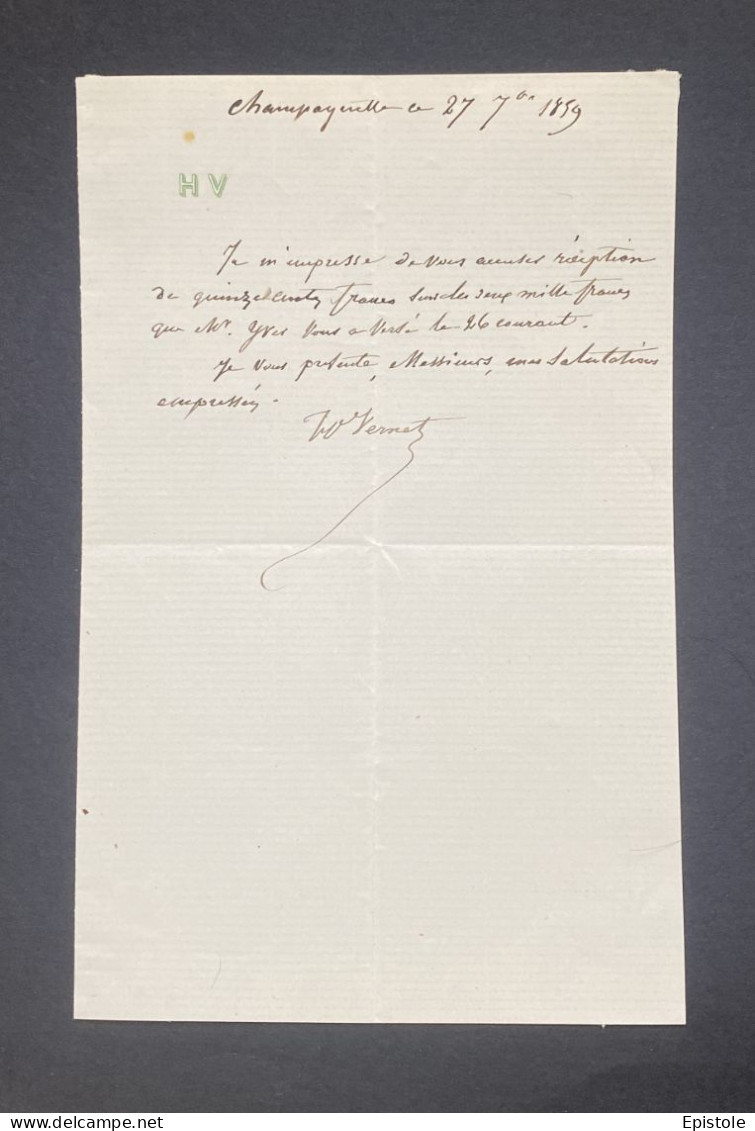 Champagnette ce 27 7bre 1859
HV
Je m'empresse de vous accuser réception
de quinze cents francs sur les deux mille francs
que Mr. Yves vous a versé le 26 courant.
Je vous présente, Messieurs, mes salutations
empressées.
Vernet
delcampe.net
Epistole